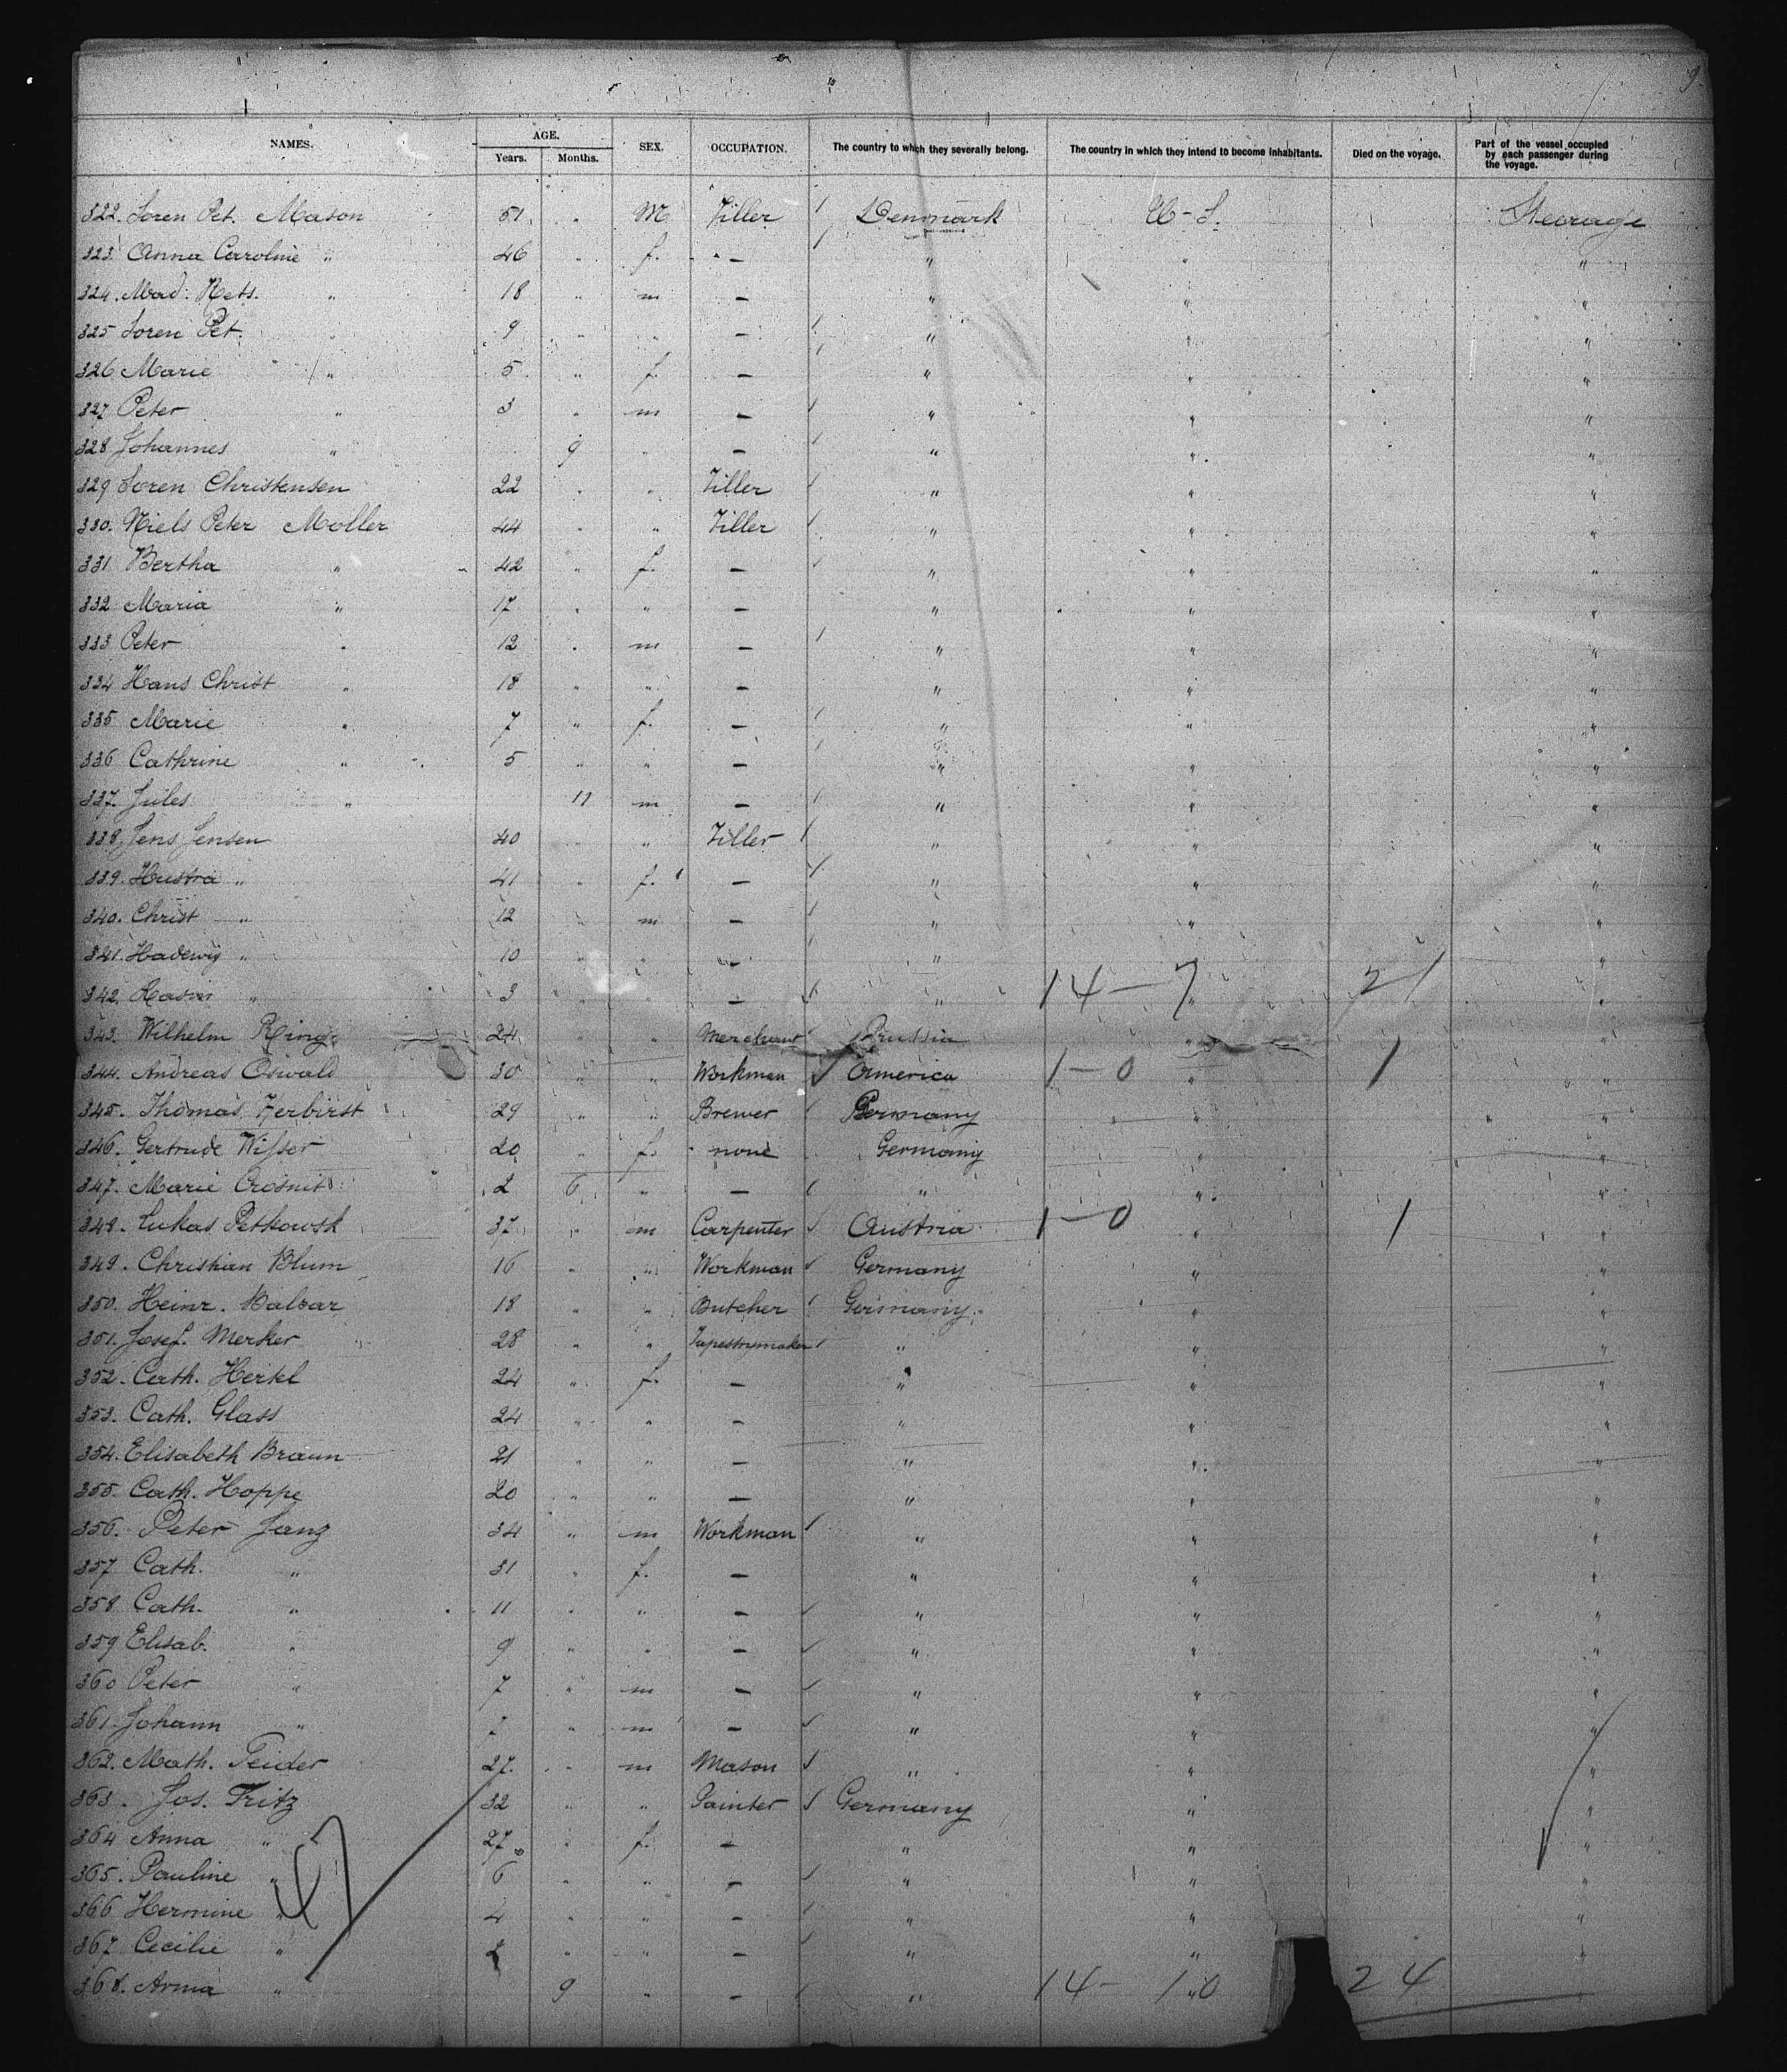 9.
NAMES. AGE. Years. Months. SEX. OCCUPATION. The country to which they severally belong. The country in which they intend to become inhabitants. Died on the voyage. Part of the vessel occupied by each passenger during the voyage.
322. Soren Pet. Mason 51 " M Tiller Denmark U-S. Steerage
323. Anna Caroline " 46 " f. — " " "
324. Mad. " 18 " m — " " "
325 Soren Pet. " 9 " " — " " "
326 Marie " 5 " f. — " " "
327 Peter " 3 " m — " " "
328 Johannes " 9 " — " " "
329 Soren Christensen 22 " " Tiller " " "
330. Niels Peter Moller 44 " " Tiller " " "
331 Bertha " 42 " f. — " " "
332 Maria " 17 " " — " " "
333 Peter " 12 " m — " " "
334 Hans Christ " 18 " " — " " "
335 Marie " 7 " f. — " " "
336 Cathrine " 5 " " — " " "
337. Jules " 11 m — " " "
338. Jens Jensen 40 " " Tiller " " "
339. Hustra " 41 " f. — " " "
340. Christ " 12 " m — " " "
341. Hadewig " 10 " " — " "
342. " 3 " " — " 14 — 7 " 21 "
343. Wilhelm Ring 24 " " Merchant Prussia " "
344. Andreas Oswald 30 " " Workman America 1 — 0 " 1 "
345. Thomas Zerbirst 29 " " Brewer Germany " "
346. Gertrude Wisser 20 " f. none Germany " "
347. Marie 2 6 " — " " "
348. Lukas Petkowsk 37 " m Carpenter Austria 1 — 0 " 1 "
349. Christian Blum 16 " " Workman Germany " "
350. Heinr. Balzar 18 " " Butcher Germany. " "
351. Josef. Merker 28 " " Tapestrymaker " " "
352. Cath. Hertel 24 " f. — " " "
353. Cath. Glass 24 " " — " " "
354. Elisabeth Braun 21 " " — " " "
355. Cath. Hoppe 20 " " — " " "
356. Peter Janz 34 " m Workman " " "
357 Cath. " 31 " f. — " " "
358 Cath. " 11 " " — " " "
359 Elisab. " 9 " " — " " "
360 Peter " 7 " m — " " "
361. Johann " " m — " " "
362. Math. Teider 27. " m Mason " " "
363. Jos. Fritz 32 " " Painter Germany " "
364 Anna " 27 " f. — " " "
365. Pauline " 6 " " — " " "
366 Hermine " 4 " " — " " "
367 Cecilie " 2 " " — " " "
368. Anna " 9 " — " 14 — 10 " 24 "
47